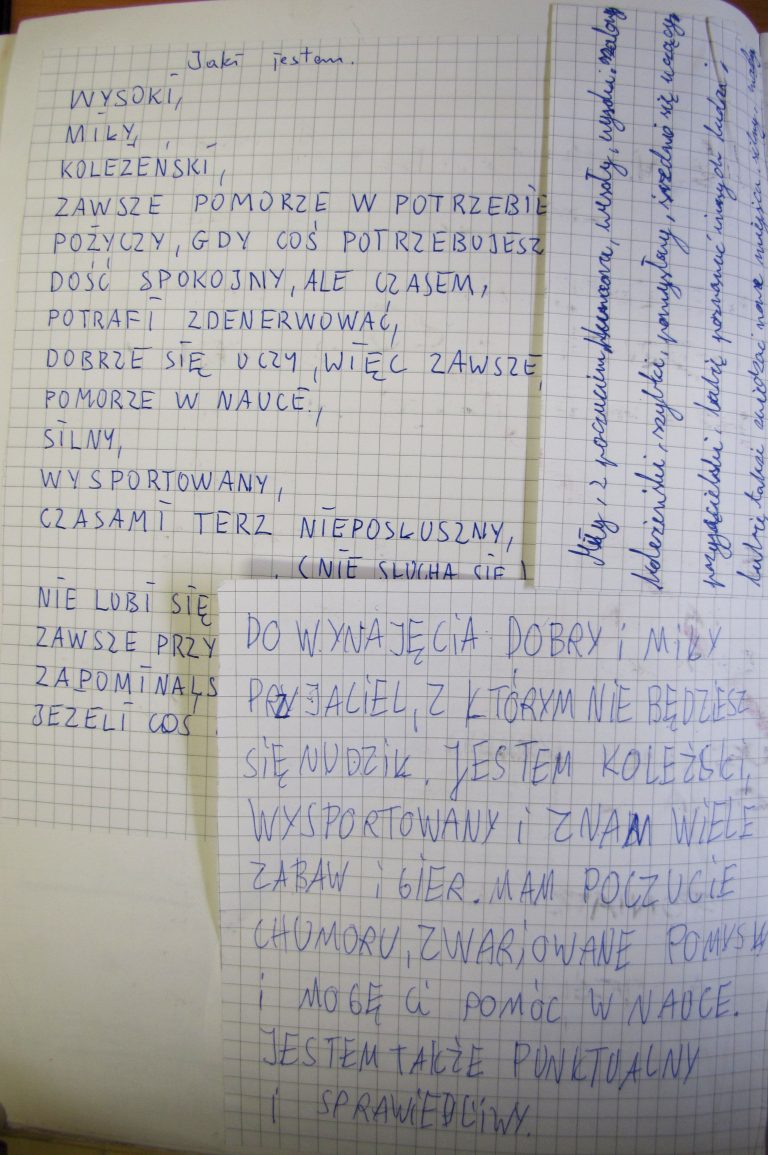 Jaki jestem.
WYSOKI,
MIŁY,
KOLEŻEŃSKI,
ZAWSZE POMORZE W POTRZEBIE
POŻYCZY, GDY COŚ POTRZEBUJESZ
DOŚĆ SPOKOJNY, ALE CZASEM,
POTRAFI ZDENERWOWAĆ,
DOBRZE SIĘ UCZY, WIĘC ZAWSZE,
POMORZE W NAUCE,
SILNY,
WYSPORTOWANY,
CZASAMI TERZ NIEPOSŁUSZNY,
(NIE SŁUCHA SIĘ)
NIE LUBI SIĘ
ZAWSZE PRZY
ZAPOMINALS
JEŻELI COŚ
Miły, z poczuciem Humoru, wesoły, wysoki,
koleżeński, szybki, pomysłowy, średnio się uczący
przyjacielski, lubię poznawać innych ludzi,
lubię także zwiedzać nowe miejsca, silny, mały
DO WYNAJĘCIA DOBRY i MIŁY
PRZYJACIEL, Z KTÓRYM NIE BĘDZIESZ
SIĘ NUDZIŁ. JESTEM KOLEŻSKI,
WYSPORTOWANY i ZNAM WIELE
ZABAW i GIER. MAM POCZUCIE
CHUMORU, ZWARIOWANE POMYSŁY
i MOGĘ Ci POMÓC W NAUCE.
JESTEM TAKŻE PUNKTUALNY
i SPRAWIEDLIWY.